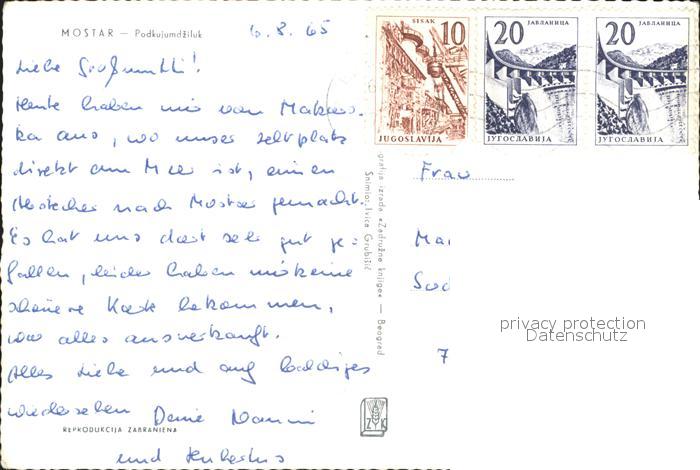 MOSTAR — Podkujumdžiluk
6.8.65
Liebe Großmutti!
Heute haben wir von Makars-
ka aus, wo unser Zeltplatz
direkt am Meer ist, einen
Abstecher nach Mostar gemacht.
Es hat uns dort sehr gut ge-
fallen, leider haben wir keine
schönere Karte bekommen,
war alles ausverkauft.
Alles Liebe und auf baldiges
Wiedersehen Deine
und Hubertus
REPRODUKCIJA ZABRANJENA
SISAK 10
JUGOSLAVIJA
20 ЈАБЛАНИЦА
ЈУГОСЛАВИЈА
20 ЈАБЛАНИЦА
ЈУГОСЛАВИЈА
grafija izrada »Zadružne knjige« — Beograd
Snimio: Ivica Grubišić
Frau
7
Z K
privacy protection
Datenschutz